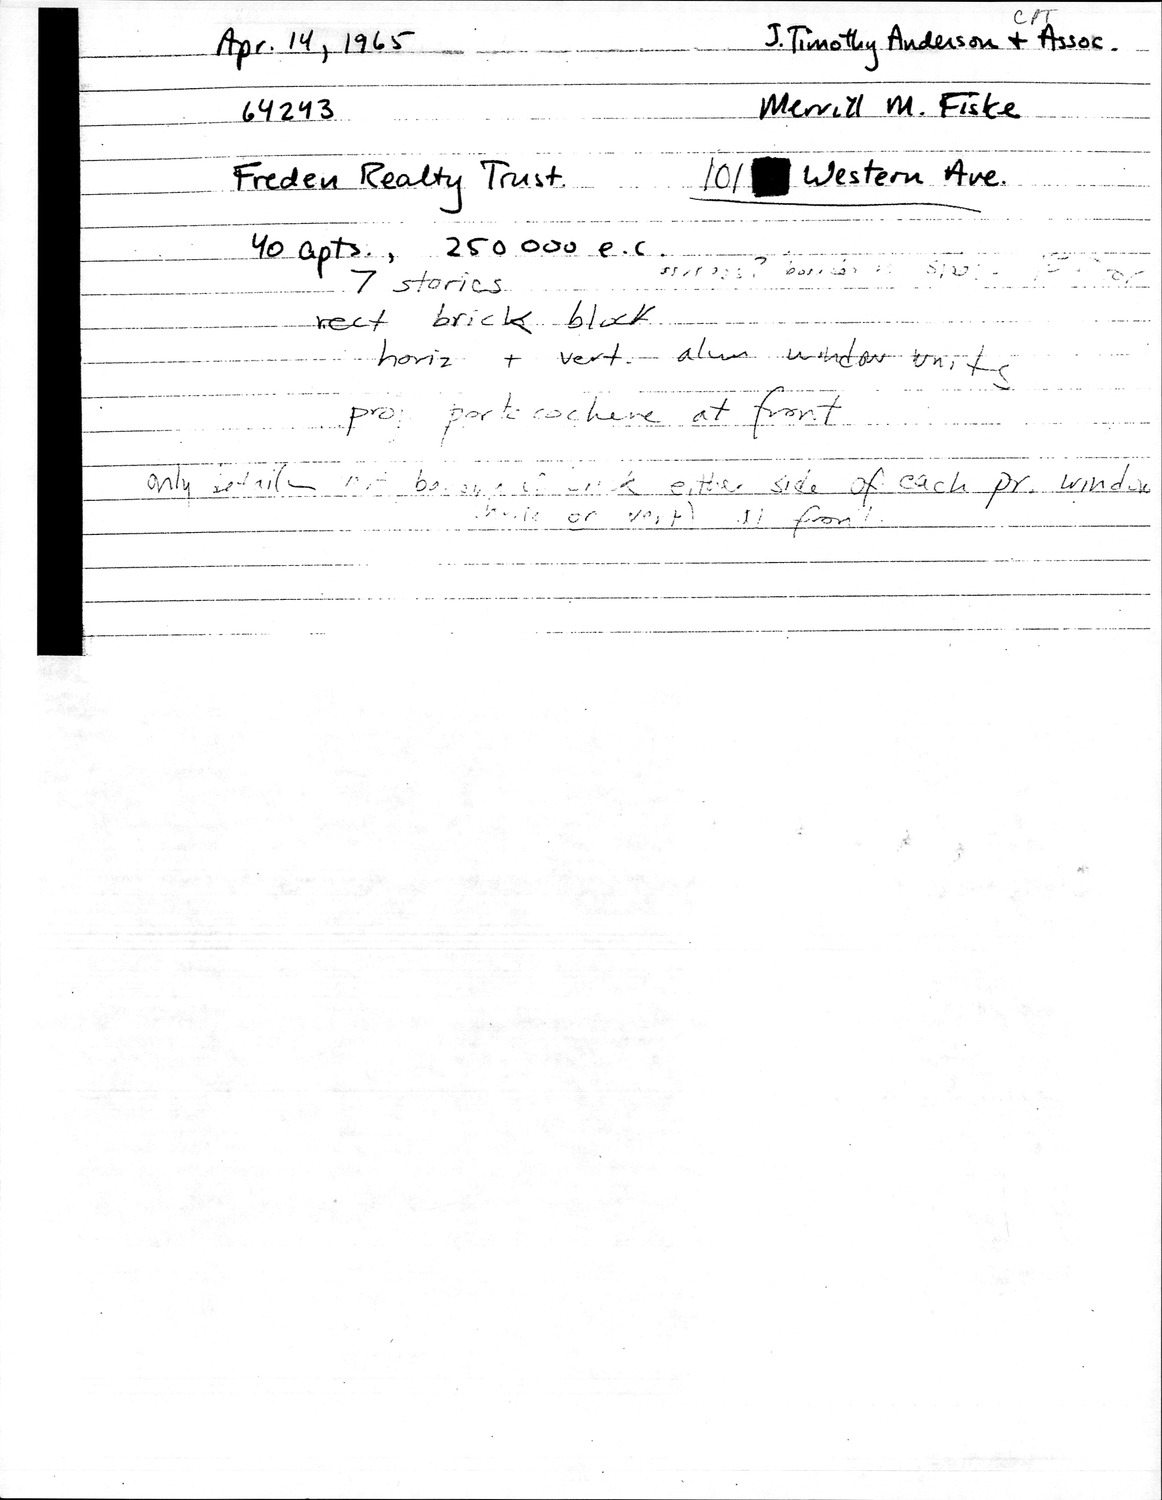 CPT
Apr. 14, 1965 J. Timothy Anderson + Assoc.
64243 Merrill M. Fiske
Freden Realty Trust. 101 Western Ave.
40 apts., 250 000 e.c.
7 stories
rect brick block
horiz + vert. alum window units
proj porte cochere at front
only either side of each pr. window
or vert) front.